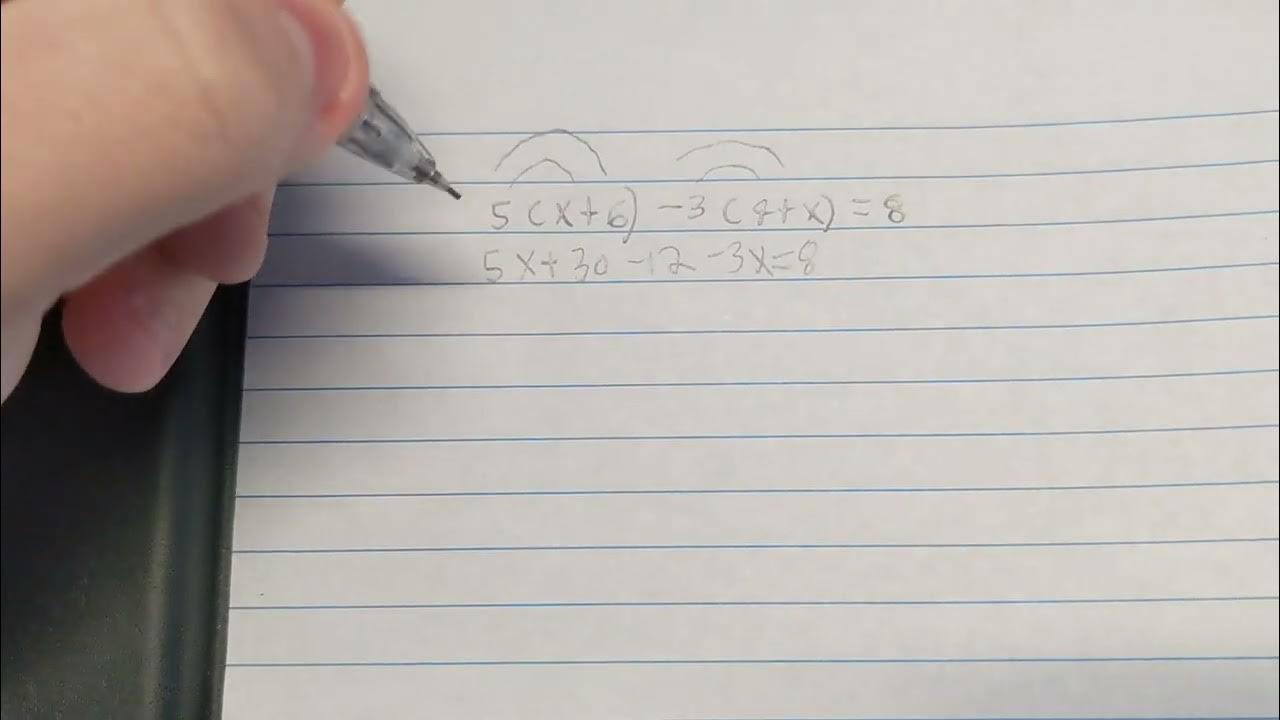 5(x+6) -3(4+x) = 8
5x+30 -12 -3x=8